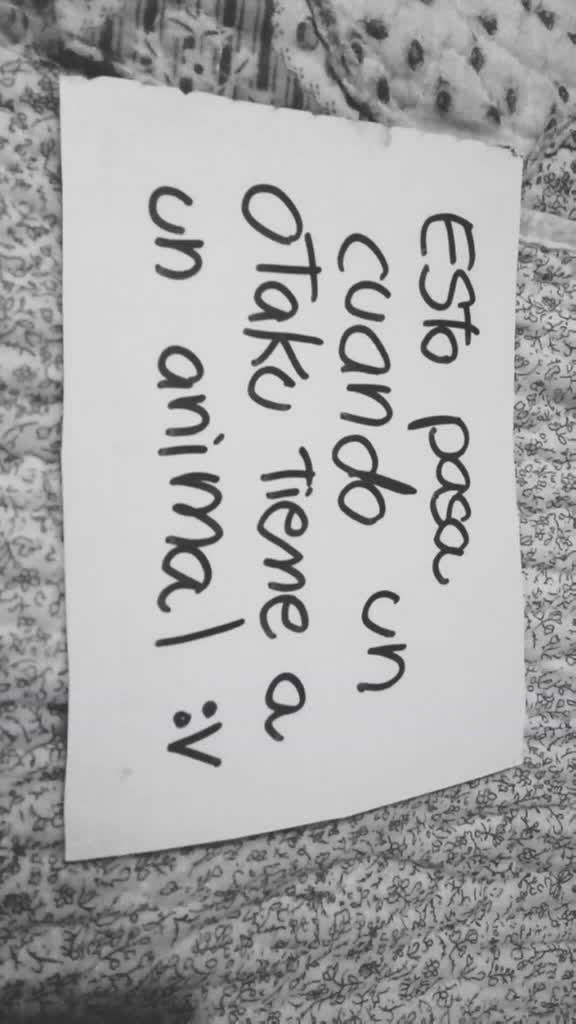 ESto pasa
cuando un
OTaku Tiene a
un animal :v